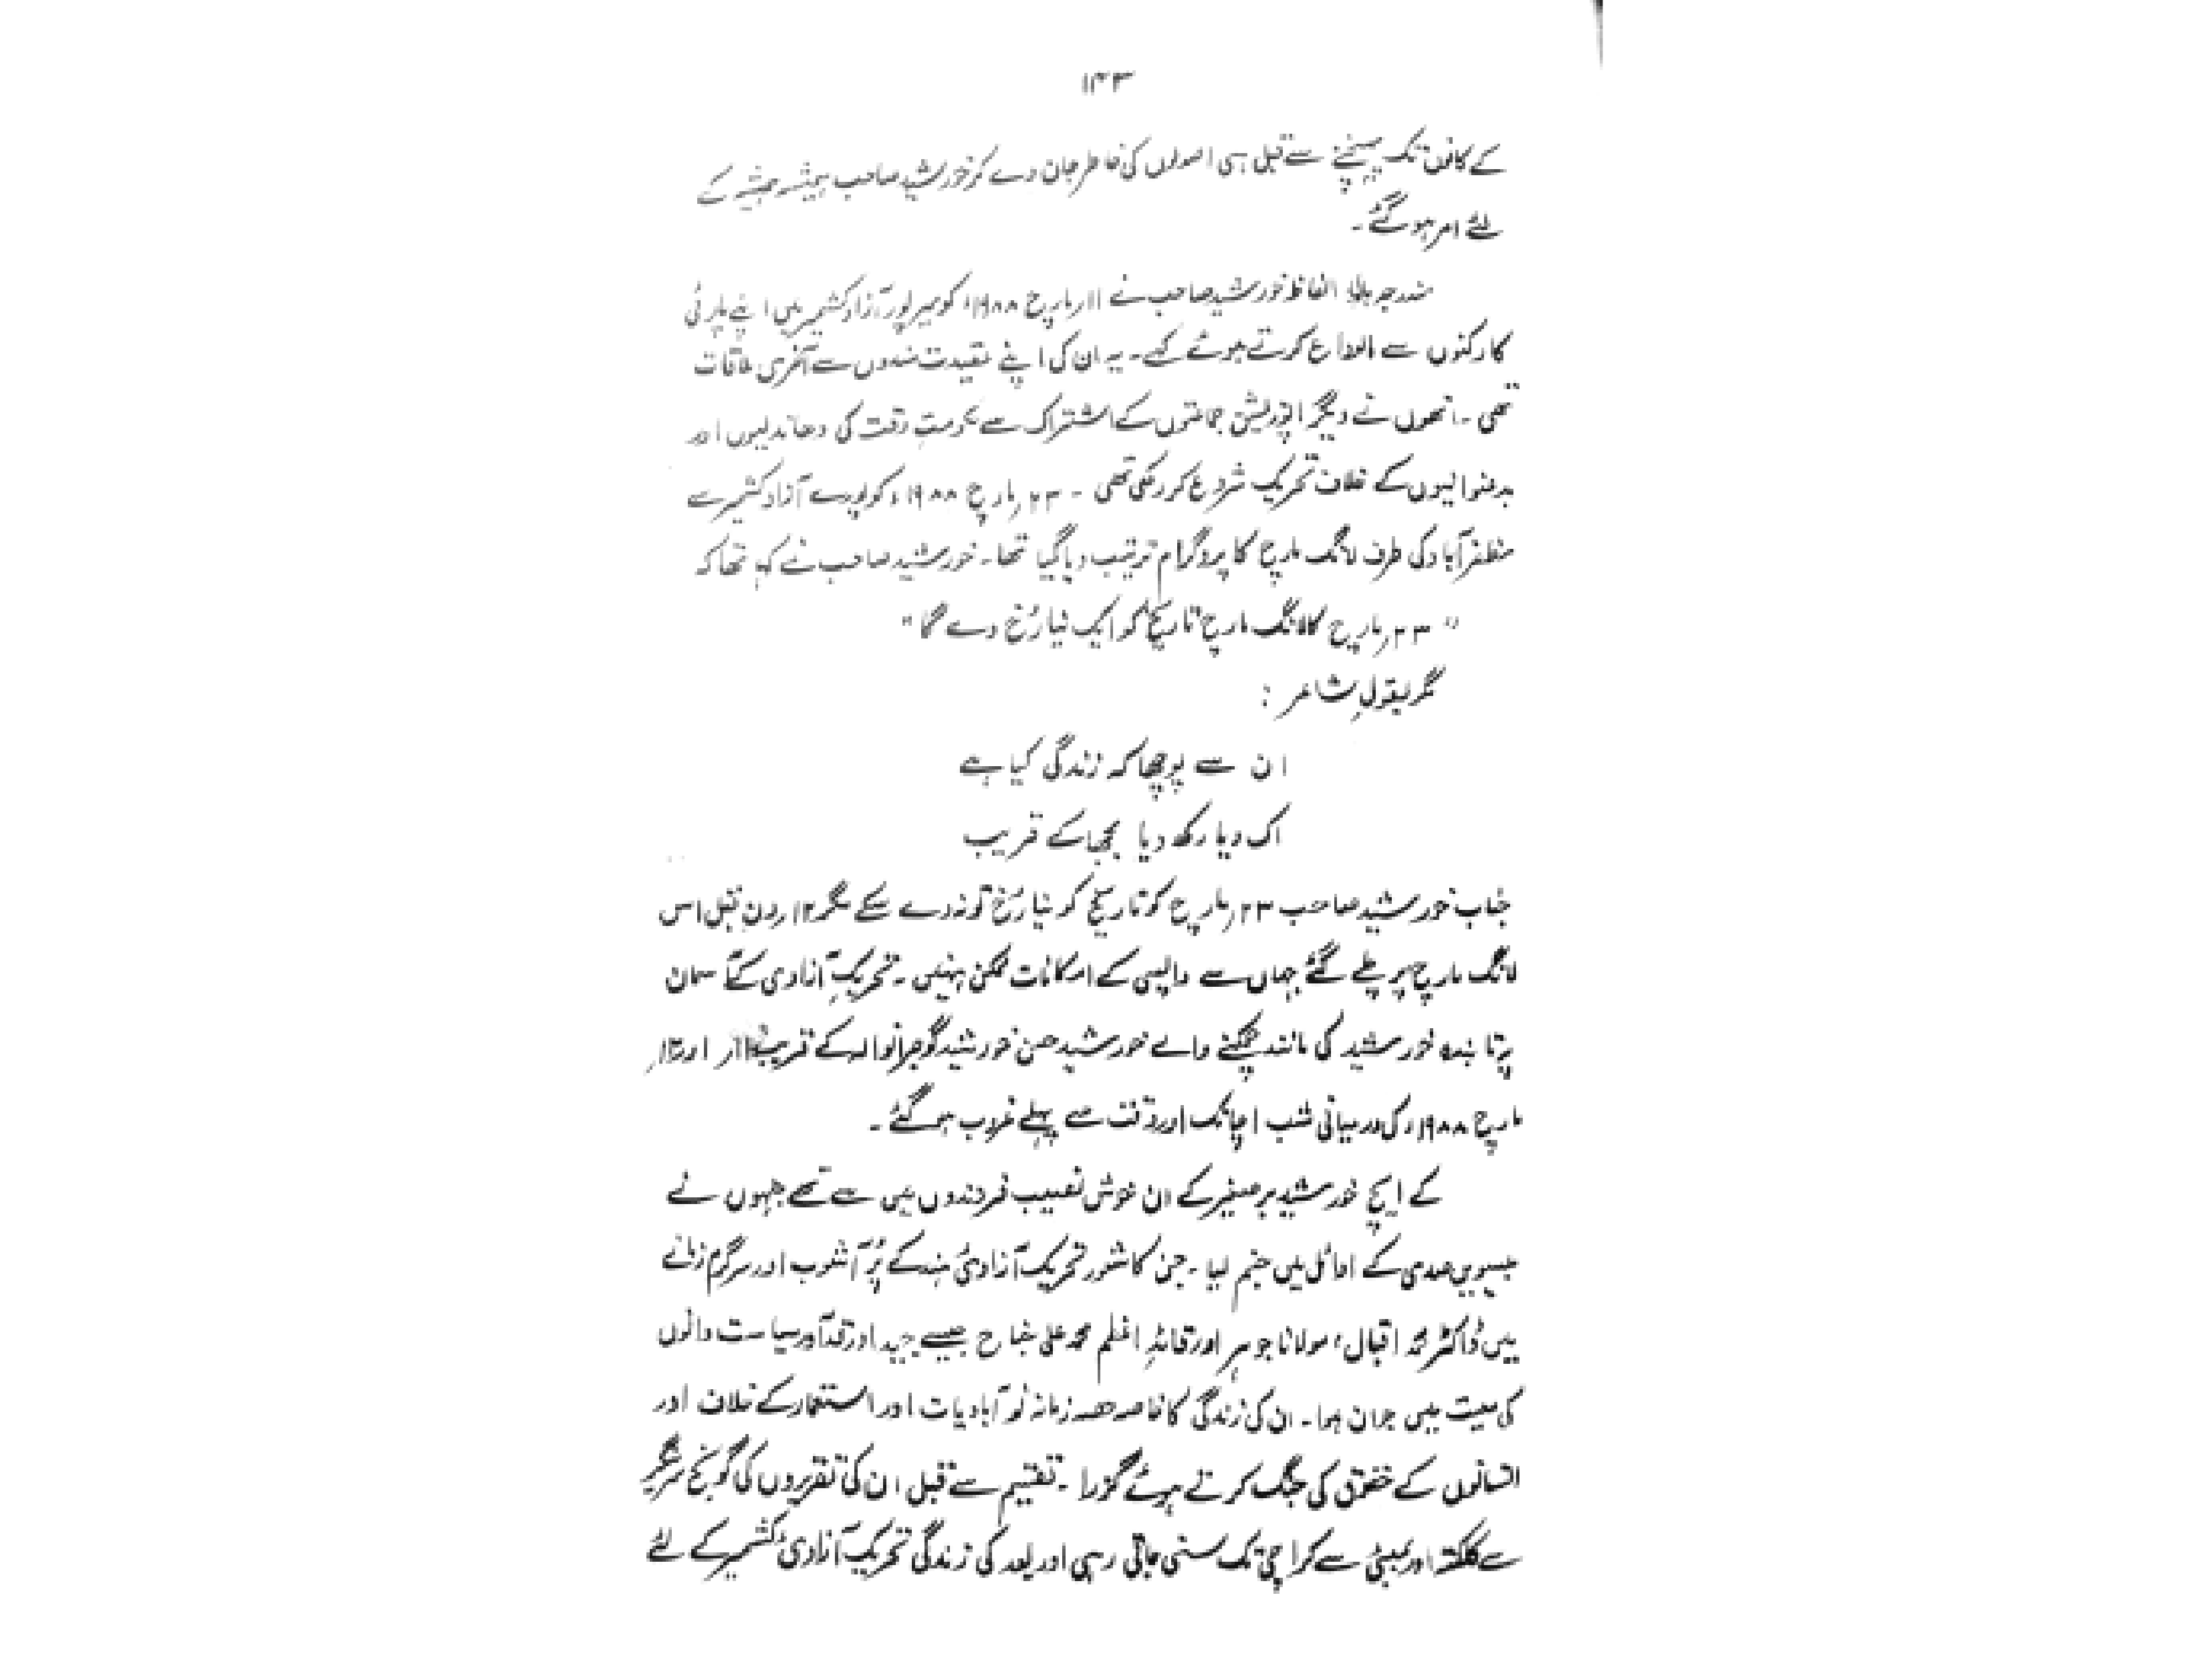 ۱۴۳
کے کانوں تک پہنچنے سے قبل ہی اصولوں کی خاطر جان دے کر خورشید صاحب ہمیشہ ہمیشہ کے
لئے امر ہو گئے۔
مندرجہ بالا الفاظ خورشید صاحب نے ۱۱ر مارچ ۱۹۸۸ء کو میرپور آزاد کشمیر میں اپنے پارٹی
کارکنوں سے الوداع کرتے ہوئے کہے۔ یہ ان کی اپنے عقیدت مندوں سے آخری ملاقات
تھی۔ انھوں نے دیگر اپوزیشن جماعتوں کے اشتراک سے حکومتِ وقت کی دھاندلیوں اور
بدعنوانیوں کے خلاف تحریک شروع کر رکھی تھی۔ ۲۳ر مارچ ۱۹۸۸ء کو پورے آزاد کشمیر سے
مظفر آباد کی طرف لانگ مارچ کا پروگرام ترتیب دیا گیا تھا۔ خورشید صاحب نے کہا تھا کہ
"۲۳ر مارچ کا لانگ مارچ تاریخ کو ایک نیا رُخ دے گا"
مگر بقولِ شاعر :
ان سے پوچھا کہ زندگی کیا ہے
اک دیا رکھ دیا بجھا کے قریب
جناب خورشید صاحب ۲۳ر مارچ کو تاریخ کو نیا رُخ تو نہ دے سکے مگر ۱۲ر دن قبل اس
لانگ مارچ پر چلے گئے جہاں سے واپسی کے امکانات ممکن نہیں۔ تحریکِ آزادی کے آسمان
پر تابندہ خورشید کی مانند چمکنے والے خورشید حسن خورشید گوجرانوالہ کے قریب ۱۱ر اور ۱۲ر
مارچ ۱۹۸۸ء کی درمیانی شب اچانک اور وقت سے پہلے غروب ہو گئے۔
کے ایچ خورشید برصغیر کے ان خوش نصیب فرزندوں میں سے تھے جنہوں نے
بیسویں صدی کے اوائل میں جنم لیا۔ جن کا شور تحریک آزادیٔ ہند کے پُر آشوب اور سرگرم زمانے
میں ڈاکٹر محمد اقبال، مولانا جوہر اور قائدِ اعظم محمد علی جناح جیسے جید اور قد آور سیاست دانوں
کی معیت میں جوان ہوا۔ ان کی زندگی کا خاصہ حصہ زمانہ نو آبادیات اور استعمار کے خلاف اور
انسانوں کے حقوق کی جنگ کرتے ہوئے گزرا۔ تقسیم سے قبل ان کی تقریروں کی گونج سرینگر
سے کلکتہ اور بمبئی سے کراچی تک سنی جاتی رہی اور بعد کی زندگی تحریکِ آزادیٔ کشمیر کے لئے